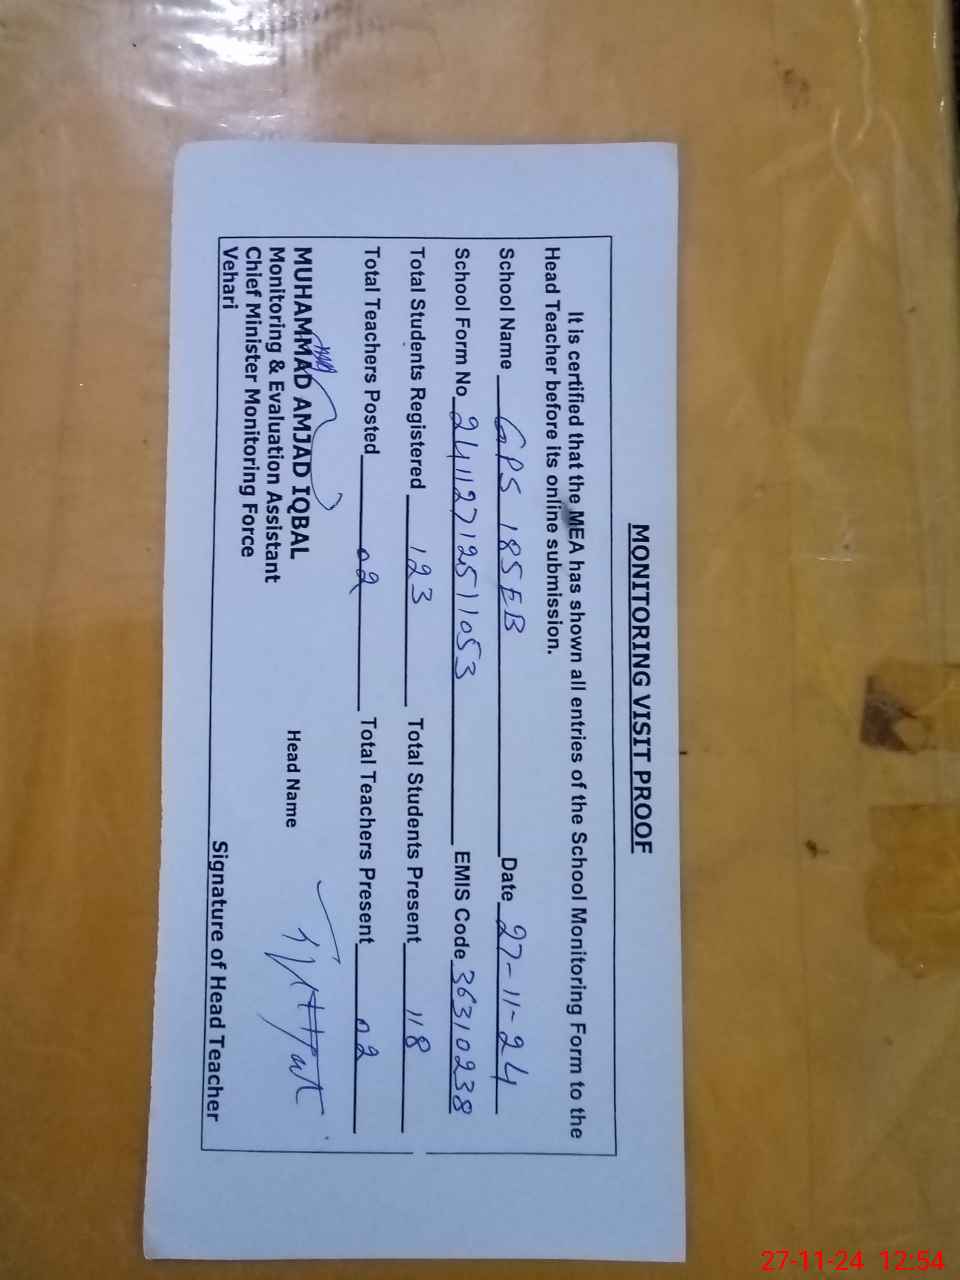 MONITORING VISIT PROOF
It is certified that the MEA has shown all entries of the School Monitoring Form to the
Head Teacher before its online submission.
School Name GPS 185EB Date 27-11-24
School Form No 24112712511053 EMIS Code 36310238
Total Students Registered 123 Total Students Present 118
Total Teachers Posted 02 Total Teachers Present 02
MUHAMMAD AMJAD IQBAL Head Name
Monitoring & Evaluation Assistant
Chief Minister Monitoring Force
Vehari Signature of Head Teacher
27-11-24 12:54